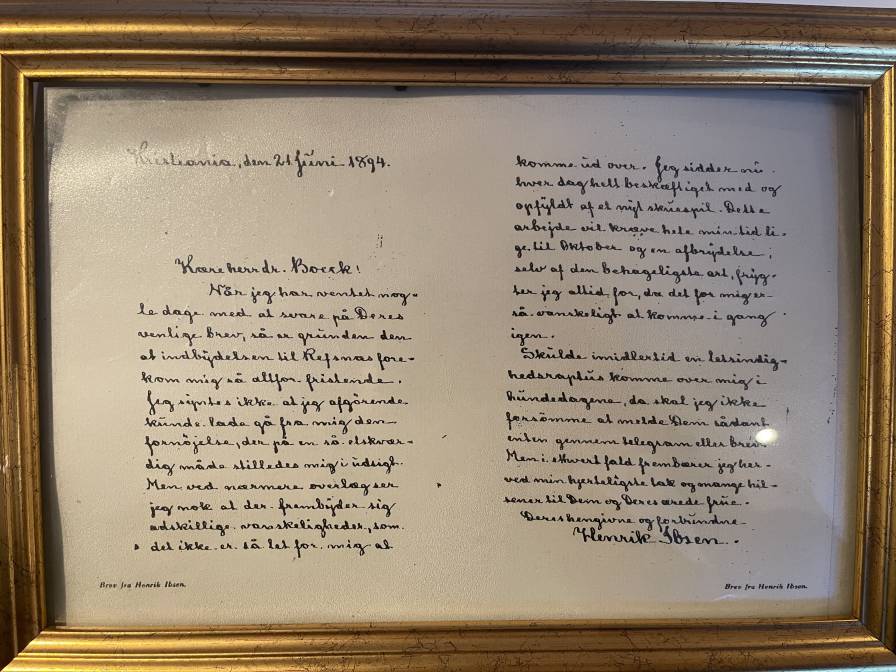 Kristiania, den 21 Juni 1894.
Kære herr dr. Boeck!
Når jeg har ventet nog-
le dage med at svare på Deres
venlige brev, så er grunden den
at indbydelsen til Refsnæs fore-
kom mig så altfor fristende.
Jeg syntes ikke at jeg afgörende
kunde lade gå fra mig den
fornöjelse, der på en så elskvær-
dig måde stilledes mig i udsigt.
Men ved nærmere overlægser
jeg nok at der frembyder sig
adskillige vanskeligheder, som
det ikke er så let for mig at
Brev fra Henrik Ibsen.
komme ud over. Jeg sidder nu
hver dag helt beskæftiget med og
opfyldt af et nyt skuespil. Dette
arbejde vil kræve hele min tid li-
ge til Oktober og en afbrydelse,
selv af den behageligste art, fryg-
ter jeg altid for, da det for mig er
så vanskeligt at komme i gang
igen.
Skulde imidlertid en letsindig-
hedsraptus komme over mig i
hundedagene, da skal jeg ikke
forsömme at melde Dem sådant
enten gennem telegram eller brev.
Men i ethvert fald frembærer jeg her-
ved min hjerteligste tak og mange hil-
sener til Dem og Deres ærede frue.
Deres hengivne og forbundne
Henrik Ibsen.
Brev fra Henrik Ibsen.